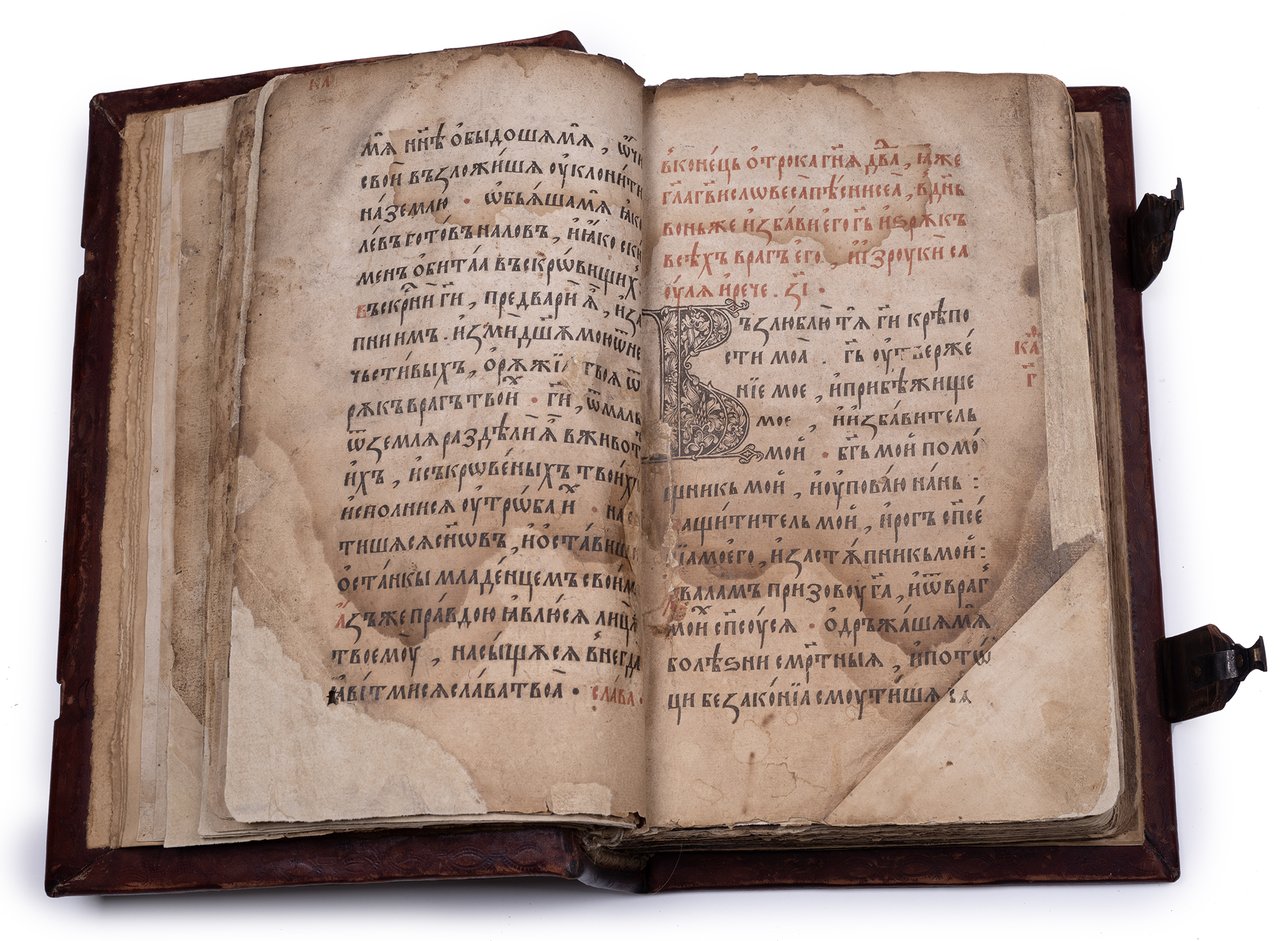 мѧ҄ нн҃ѣ ѻ҆быдошѧмѧ҄ , ѿчи
свои҄ въꙁложи́шѧ ѹ҆клони́ти
на́ꙁемлю · ѡ҆бьѧ́шамѧ҄ ꙗ҆́ко
ле́въ гото́въ наловъ , и҆ ꙗ҆́ко ски
менъ ѻ҆бита́ѧ въскрѡ́вищиⷯ
въскрⷭ҇ни гⷭ҇и , предвари҄ ѧ҆̀ , и҆ꙁа
пни имъ . и҆ꙁми дш҃ѫ мою̀ ѿне
чьсти́выхъ , ѻ҆рѫ́жїѧ твоѧ̀ ѿ
рѫ́къ врагъ твоиⷯ · гⷭ҇и , ѿмалъ
ѿꙁемлѧ раꙁдѣли҄ ѧ҆̀ вживотѣ̀
и҆́хъ , и҆съкрове́ныхъ твои́хъ
и҆спо́лнисѧ ѹ҆тро́ба иⷯ · на
тишѧсѧ сн҃ѡвъ , и҆ ѻ҆ста́виша
ѻ҆ста́нкы младе́нцемъ свои́мъ
а҆́ꙁъже пра́вдою ꙗ҆влю́сѧ лицꙋ̀
твоемоу҄ , насы́щѫсѧ вне́гда
ꙗ҆ви́тмисѧ сла́ва твоа̀ · сла́ва ·
вконе́ць ѻ҆́трока гⷭ҇нѧ дв҃да , ꙗ҆́же
гл҃а гв҃и словеса̀ пѣ́сни сеѧ̀ , вдн҃ь
воньже и҆ꙁба́ви его̀ гь҃ и҆ꙁрѫ́къ
всѣ́хъ врагъ его̀ , и҆ иꙁроукѝ са
оу́лѧ и҆ рече . ꙁ҃і ·
Въꙁлюблю̀ тѧ гⷭ҇и крѣ́по
сти моа̀ . гь҃ ѹ҆тверже́
нїе мое , и҆ прибѣ́жище
мое , и҆ иꙁба́витель
мои҄ · бг҃ь мои҄ помо́
щникь мои҄ , и҆ оупова́ю на́нь :
Защи́титель мои҄ , и҆ рогъ сп҃се
нїа моего̀ , и҆ ꙁастѫ́пникь мои҄ :
хвалѧмъ приꙁовоу҄ га҃ , и҆ ѿвраⷢ҇
мои́хъ сп҃соусѧ · ѻ҆дръжа́шѧмѧ
болѣ́ꙁни смр҃тныѧ , и҆ пото́
ци беꙁако́нїа смоути́шѧ
каⷴ҇
г҃